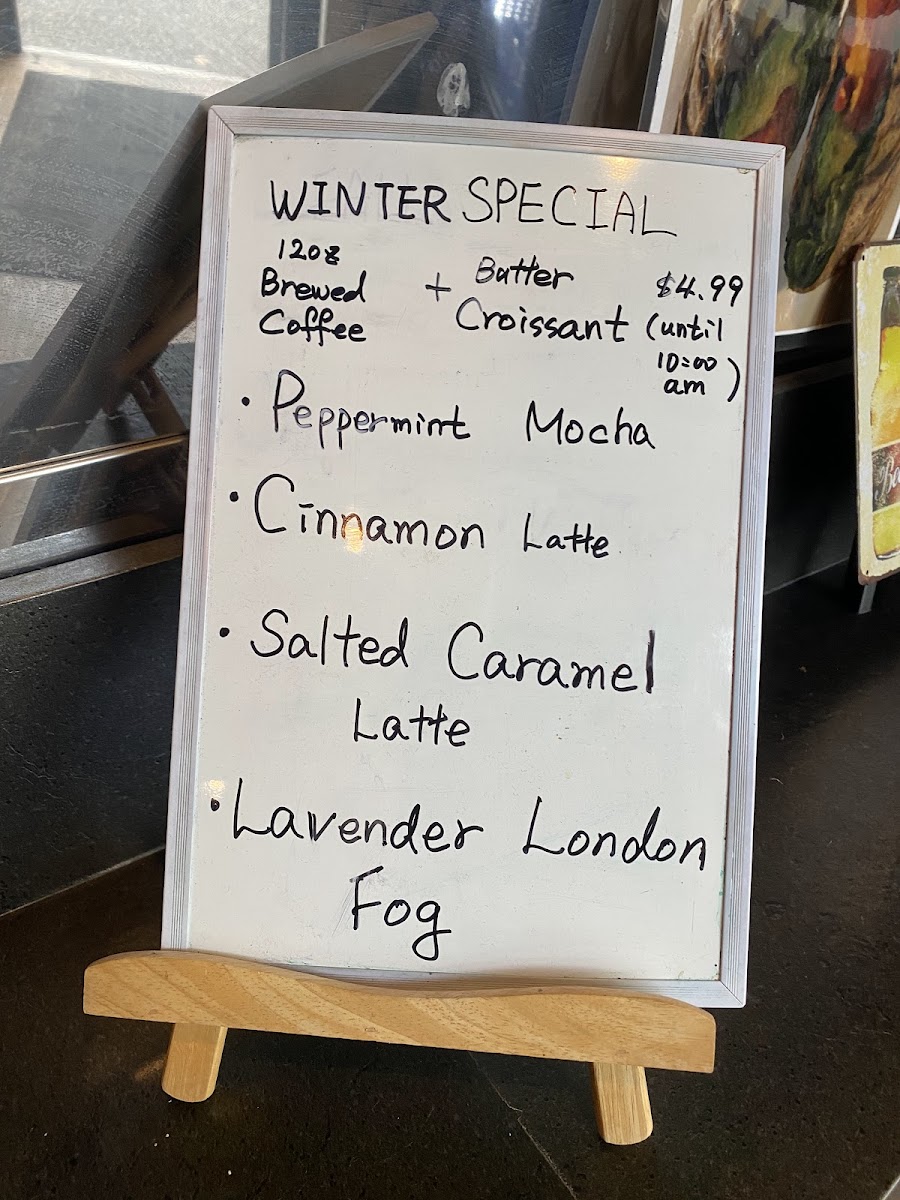 WINTER SPECIAL
12oz
Brewed
Coffee
+
Butter
Croissant
$4.99
(until
10:00
am)
• Peppermint Mocha
• Cinnamon Latte
• Salted Caramel
Latte
• Lavender London
Fog